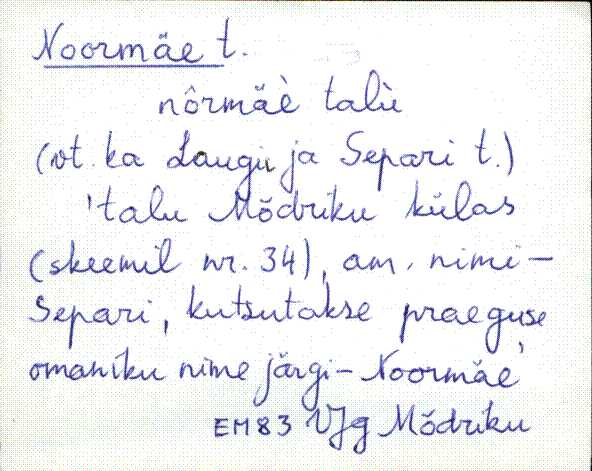 Noormäe t.
nôrmäè talù
(vt. ka Laugu ja Separi t.)
'talu Mõdriku külas
(skeemil nr. 34), am. nimi –
Separi, kutsutakse praeguse
omaniku nime järgi – Noormäe'
EM83 VJg Mõdriku